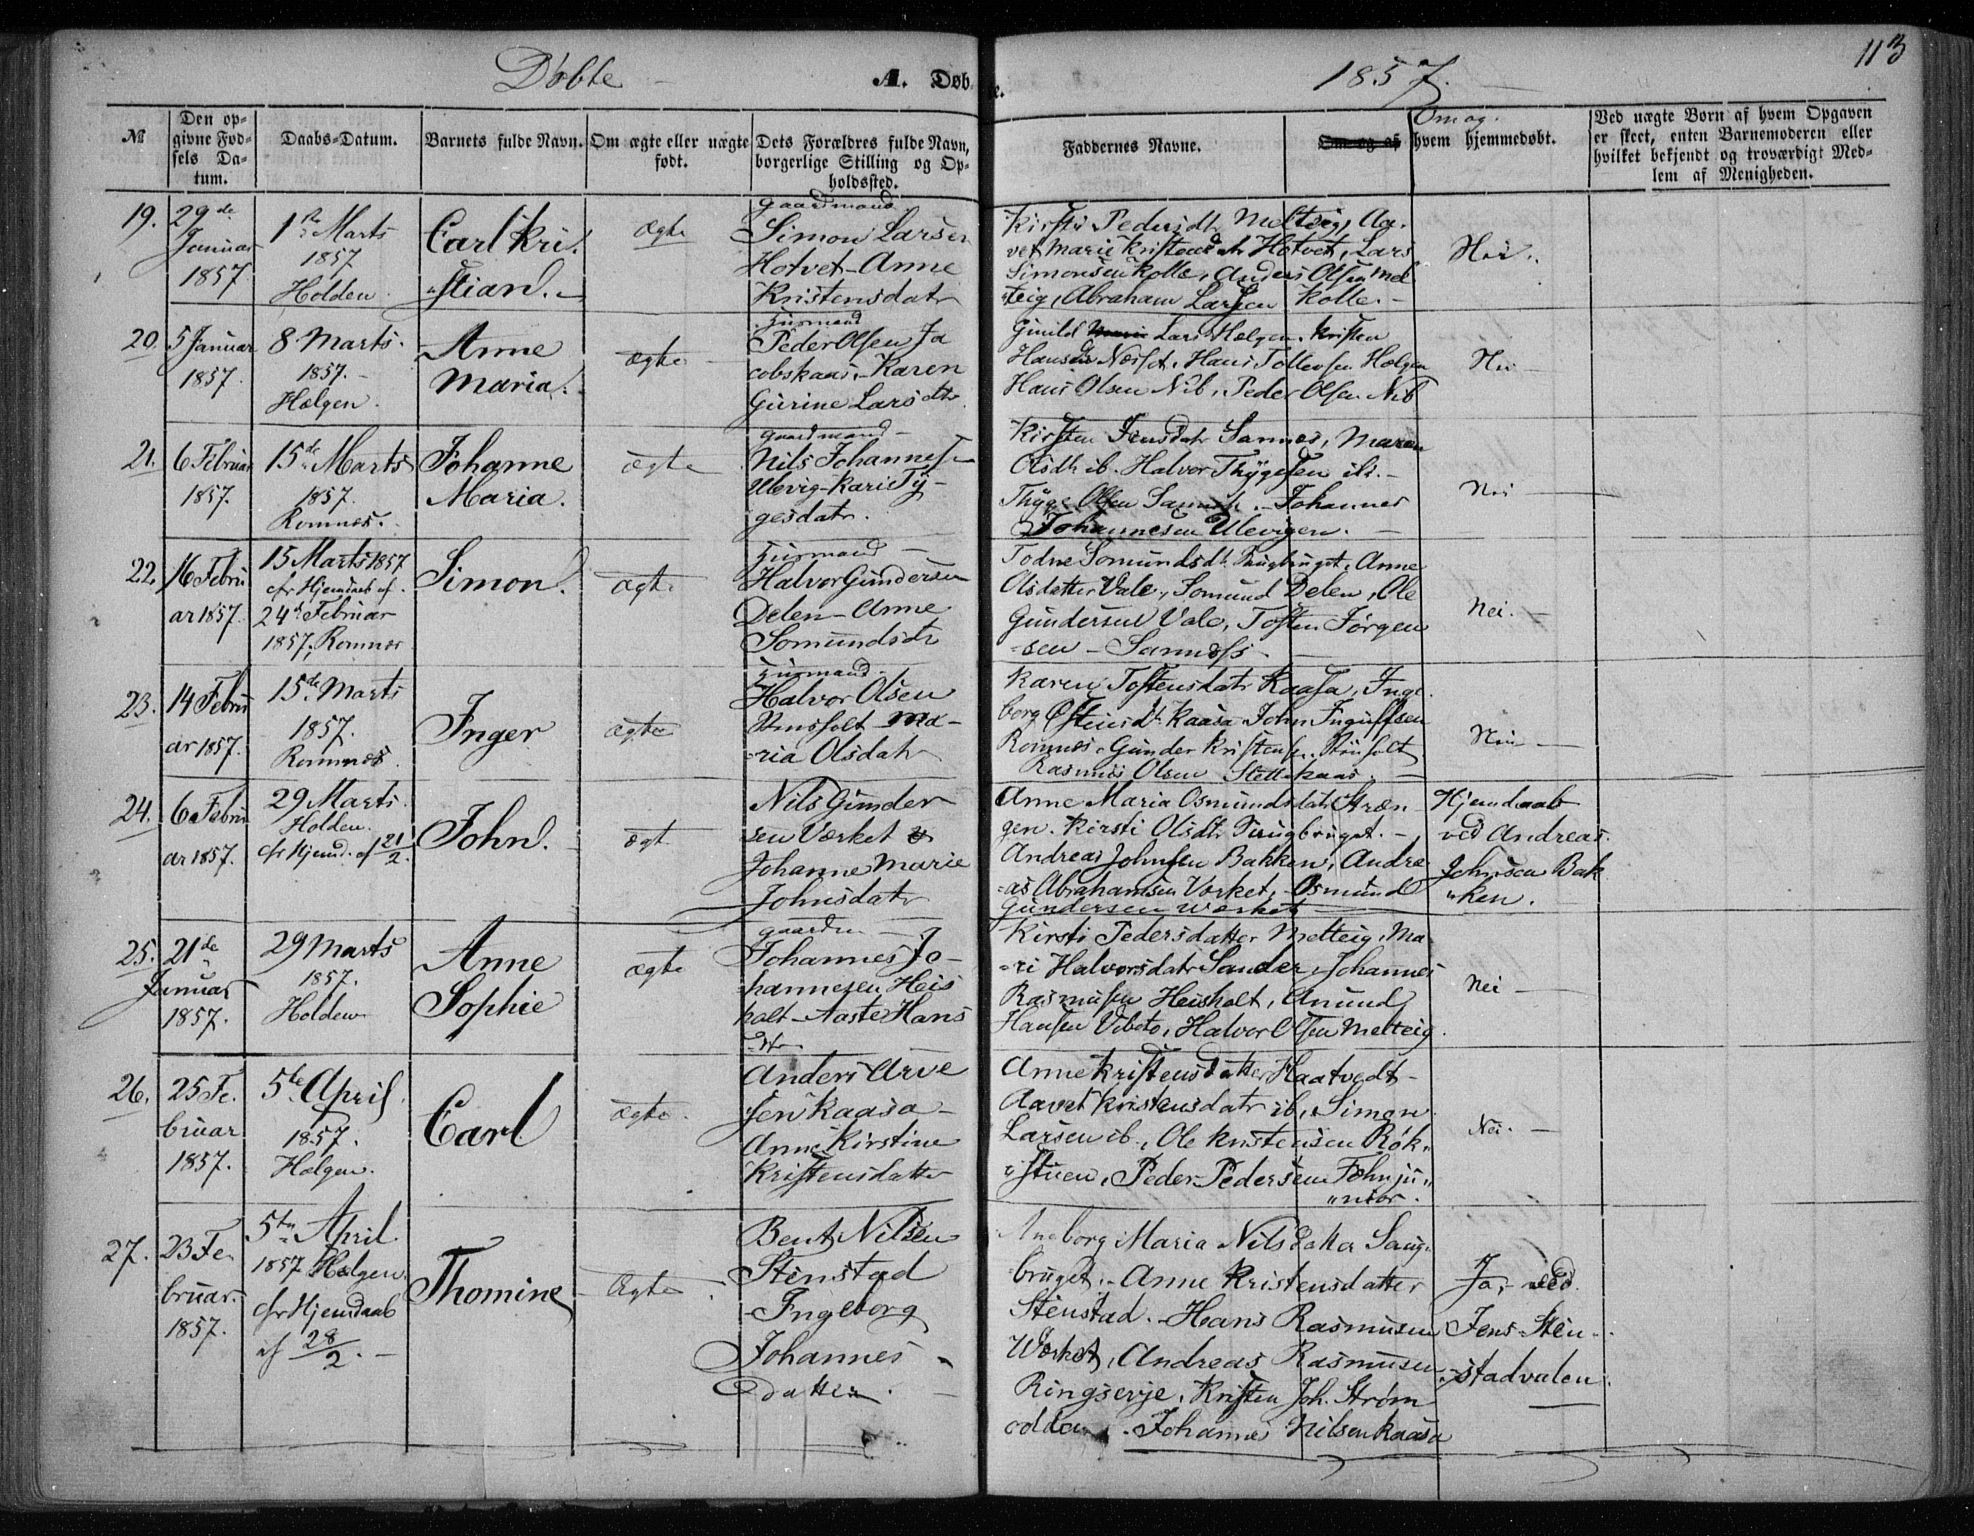 Døbte
A. Døbte.
1857.
113
№
Den opgivne Fødsels Datum.
Daabs-Datum.
Barnets fulde Navn.
Om ægte eller uægte født.
Dets Forældres fulde Navn, borgerlige Stilling og Opholdssted.
Faddernes Navne.
Om og af hvem hjemmedøbt.
Om og.
Ved uægte Børn af hvem Opgaven er skeet, enten Barnemoderen eller hvilket bekjendt og troværdigt Medlem af Menigheden.
19.
29de
Januar
1857.
1ste Marts
1857
Holden
Carl Kri
stian.
ægte
gaardmand
Simon Larsen
Hotvet - Anne
Kristensdatr
Kirsti Pedersdtr Melteig, Aa-
vet Marie Kristensdtr Hotvet, Lars
Simonsen Kolle, Anders Olsen Mel
teig, Abraham Larsen Kolle.
Nei.
20.
5 Januar
1857.
8 Marts.
1857.
Hælgen.
Anne
Maria.
ægte
Husmand
Peder Olsen Ja
cobskaas. Karen
Gurine Larsdtr
Gunild Lars Hælgen. Kristen
Hansen Næsset, Hans Tollevsen Hælgen
Hans Olsen Nib, Peder Olsen Nib
Nei
21.
6 Februar
1857.
15de Marts
1857.
Romnæs.
Johanne
Maria.
ægte
gaardmand
Nils Johannesen
Ulevig - Kari Ty-
gesdatr.
Kirsten Jensdatr Sannes, Maren
Olsdtr ib. Halvor Thygesen ib.
Thyge Olsen Sannes. Johannes
Johannesen Ulevigen.
Nei
22.
16 Febru
ar 1857.
15 Marts 1857
cfr Hjemdaab af
24de Februar
1857, Romnæs
Simon.
ægte
Husmand
Halvor Gundersen
Delen - Anne
Somundsdtr
Todne Somundsdt. Saugbruget, Anne
Olsdatter Vale, Somund Delen, Ole
Gundersen Vale, Tosten Jørgen
sen - Sannæss
Nei.
23.
14 Febru
ar 1857.
15de Marts
1857.
Romnæs.
Inger
ægte
Husmand
Halvor Olsen
Stensholt - Ma-
ria Olsdatr
Karen Tostensdatr Kaasa, Inge
borg Østensdt. Kaasa John Ingulfsen
Romnæs. Gunder Kristensen Stensholt
Rasmus Olsen Slettekaas.
Nei
24.
6 Febru
ar 1857.
29 Marts
Holden.
cfr Hjemd. af 21/2.
John.
ægte
Nils Gunder
sen Værket
Johanne Marie
Johnsdatr
Anne Maria Osmundsdatr Stræn
gen. Kirsti Olsdtr Saugbruget.
Andreas Johnsen Bakken, Andre
as Abrahamsen Værket, Osmund
Gundersen Værket
Hjemdaab
ved Andreas
Johnsen Bak
ken.
25.
21de
Januar
1857.
29 Marts
1857.
Holden
Anne
Sophie
ægte
gaardm
Johannes Jo-
hannesen Heis
holt - Aaste Hans
dtr
Kirsti Pedersdatter Melteig, Ma
ri Halvorsdatr Sanda, Johannes
Rasmusen Heisholt, Anund
Hansen Vibeto, Halvor Olsen Melteig.
Nei
26.
25 Fe.
bruar
1857.
5te April
1857.
Hælgen.
Carl
ægte
Anders Arve
sen Kaasa
Anne Kirstine
Kristensdatter
Anne Kristensdatter Haatvedt
Aavet Kristensdatr ib, Simon
Larsen ib, Ole Kristensen Røk
stuen, Peder Pedersen Fæhn ju
nior.
Nei.
27.
23 Fe
bruar.
1857.
5te April
1857 Hælgen
cfr Hjemdaab
af 28/2.
Thomine
ægte
Bent Nilsen
Stenstad
Ingeborg
Johannes
datter.
Ingeborg Maria Nilsdatter Saug
bruget. Anne Kristensdatter
Stenstad. Hans Rasmusen
Værket, Andreas Rasmusen
Ringsevje, Kristen Joh. Strøm
odden. Johannes Nilsen Kaasa
Ja, ved
Jens Sten
stadvalen.